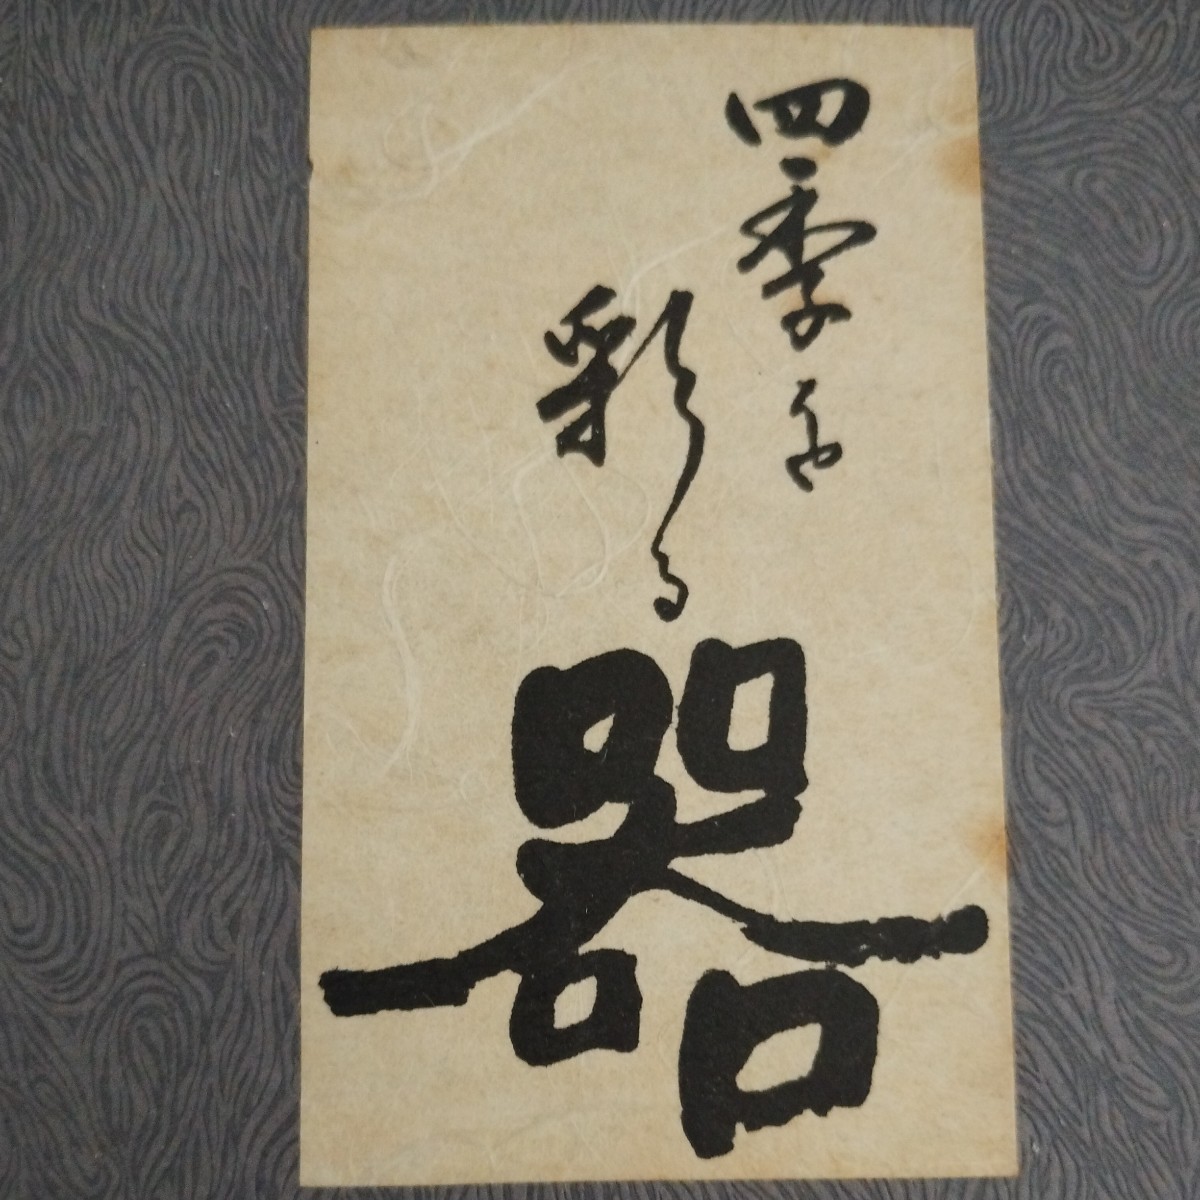 四季を
彩る
器